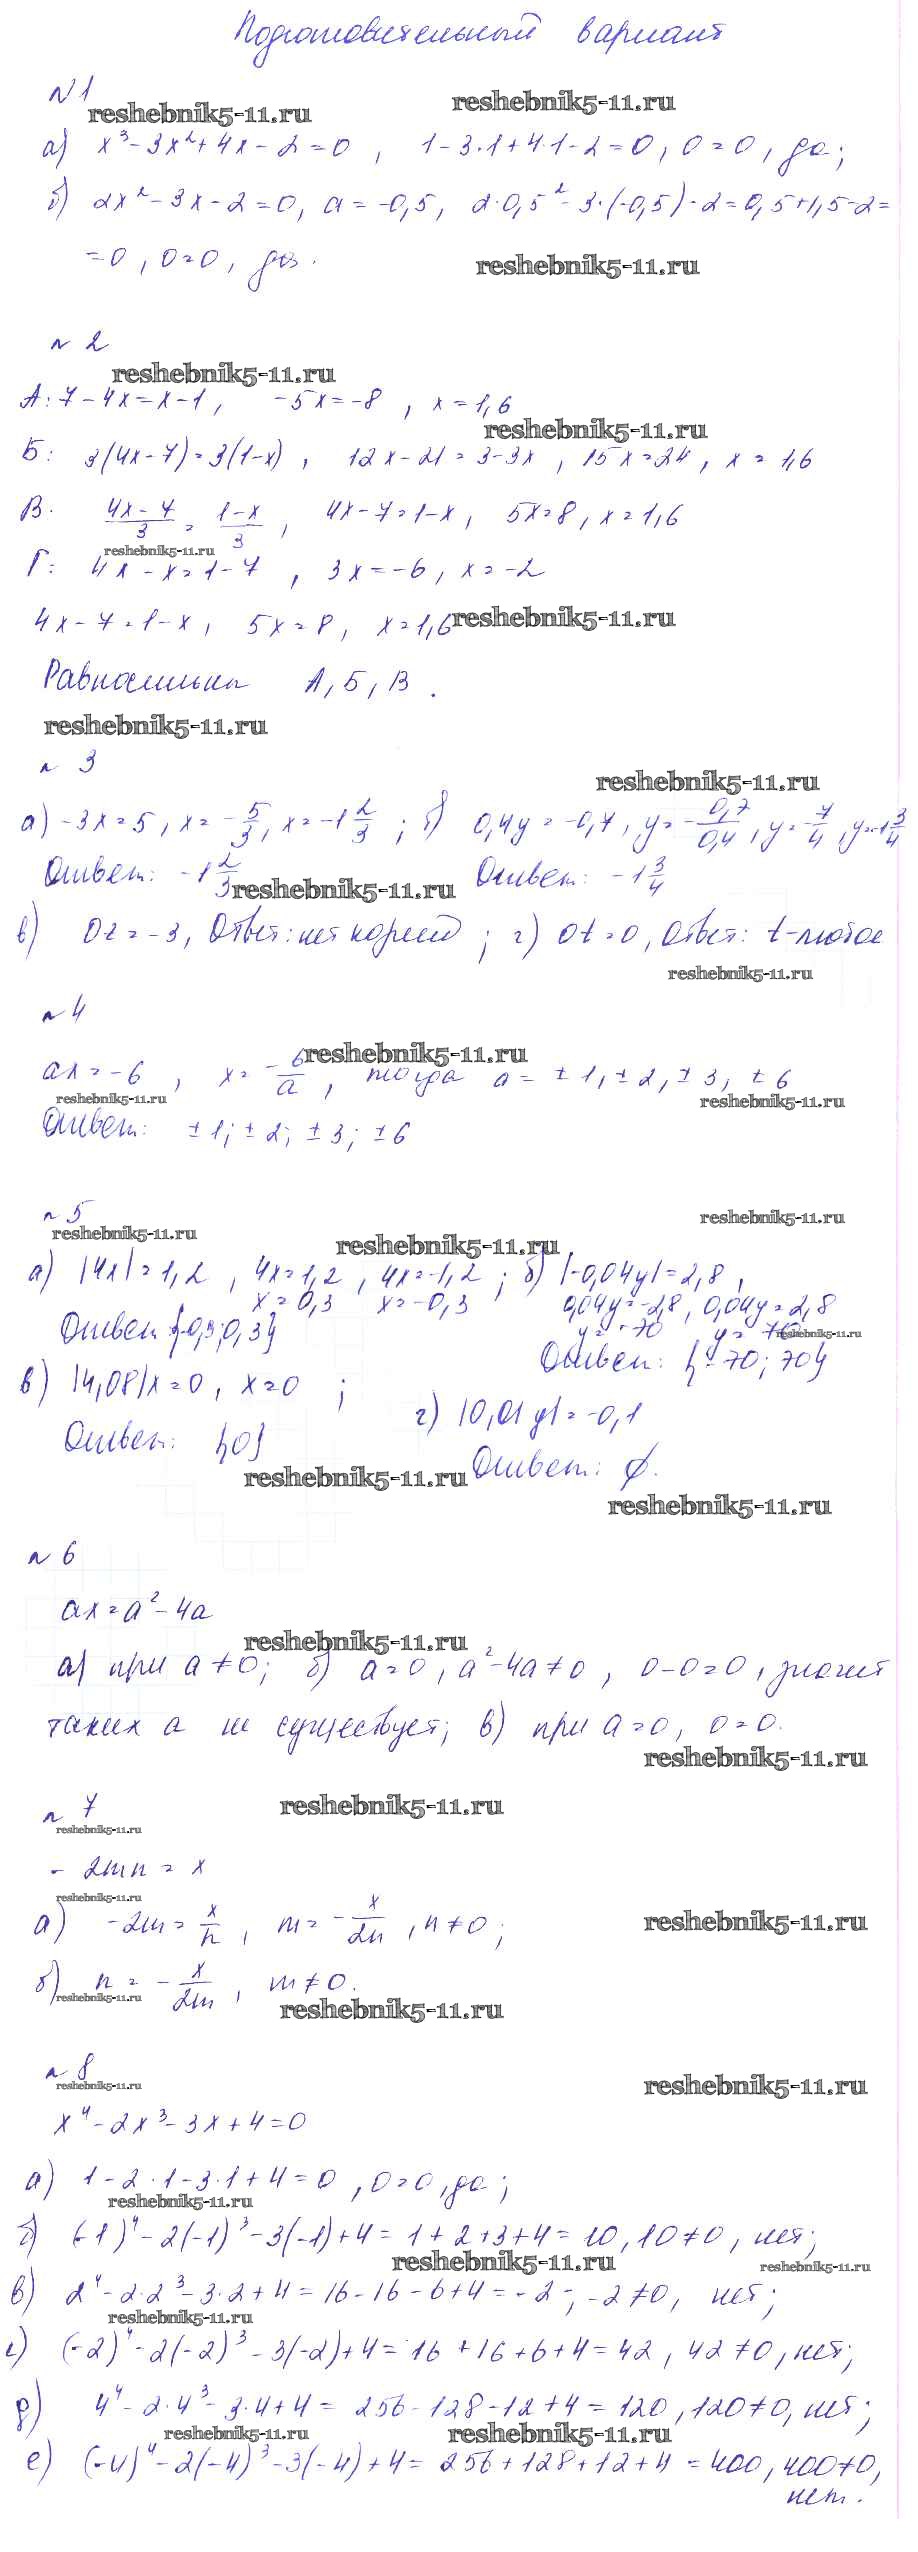 Подготовительный вариант
№1
reshebnik5-11.ru reshebnik5-11.ru
а) x³ - 3x² + 4x - 2 = 0, 1 - 3·1 + 4·1 - 2 = 0, 0 = 0, да;
б) 2x² - 3x - 2 = 0, a = -0,5, 2·0,5² - 3·(-0,5) - 2 = 0,5 + 1,5 - 2 =
= 0, 0 = 0, да.
reshebnik5-11.ru
№ 2
reshebnik5-11.ru
А: 7 - 4x = x - 1, -5x = -8, x = 1,6
reshebnik5-11.ru
Б: 3(4x - 7) = 3(1 - x), 12x - 21 = 3 - 3x, 15x = 24, x = 1,6
В. (4x - 7)/3 = (1 - x)/3, 4x - 7 = 1 - x, 5x = 8, x = 1,6
reshebnik5-11.ru
Г: 4x - x = 1 - 7, 3x = -6, x = -2
4x - 7 = 1 - x, 5x = 8, x = 1,6
reshebnik5-11.ru
Равносильны А, Б, В.
reshebnik5-11.ru
№ 3
reshebnik5-11.ru
а) -3x = 5, x = -5/3, x = -1 2/3; б) 0,4y = -0,7, y = -0,7/0,4, y = -7/4, y = -1 3/4
Ответ: -1 2/3 Ответ: -1 3/4
reshebnik5-11.ru
в) 0z = -3, Ответ: нет корней; г) 0t = 0, Ответ: t - любое
reshebnik5-11.ru
№ 4
reshebnik5-11.ru
ax = -6, x = -6/a, тогда a = ±1, ±2, ±3, ±6
reshebnik5-11.ru reshebnik5-11.ru
Ответ: ±1; ±2; ±3; ±6
№ 5
reshebnik5-11.ru reshebnik5-11.ru
reshebnik5-11.ru
а) |4x| = 1,2, 4x = 1,2, 4x = -1,2; б) |-0,04y| = 2,8,
x = 0,3 x = -0,3 0,04y = -2,8, 0,04y = 2,8
Ответ {-0,3; 0,3} y = -70 y = 70
reshebnik5-11.ru
Ответ: {-70; 70}
в) |4,08|x = 0, x = 0;
г) |0,01y| = -0,1
Ответ: {0}
Ответ: ∅.
reshebnik5-11.ru
reshebnik5-11.ru
№ 6
ax = a² - 4a
reshebnik5-11.ru
а) при a ≠ 0; б) a = 0, a² - 4a ≠ 0, 0 - 0 = 0, значит
таких a не существует; в) при a = 0, 0 = 0.
reshebnik5-11.ru
№ 7
reshebnik5-11.ru
reshebnik5-11.ru
- 2mn = x
reshebnik5-11.ru
а) -2m = x/n, m = -x/2n, n ≠ 0;
reshebnik5-11.ru
б) n = -x/2m, m ≠ 0.
reshebnik5-11.ru
reshebnik5-11.ru
№ 8
reshebnik5-11.ru
reshebnik5-11.ru
x⁴ - 2x³ - 3x + 4 = 0
а) 1 - 2·1 - 3·1 + 4 = 0, 0 = 0, да;
reshebnik5-11.ru
б) (-1)⁴ - 2(-1)³ - 3(-1) + 4 = 1 + 2 + 3 + 4 = 10, 10 ≠ 0, нет;
reshebnik5-11.ru reshebnik5-11.ru
в) 2⁴ - 2·2³ - 3·2 + 4 = 16 - 16 - 6 + 4 = -2; -2 ≠ 0, нет;
reshebnik5-11.ru
г) (-2)⁴ - 2(-2)³ - 3(-2) + 4 = 16 + 16 + 6 + 4 = 42, 42 ≠ 0, нет;
д) 4⁴ - 2·4³ - 3·4 + 4 = 256 - 128 - 12 + 4 = 120, 120 ≠ 0, нет;
reshebnik5-11.ru reshebnik5-11.ru
е) (-4)⁴ - 2(-4)³ - 3(-4) + 4 = 256 + 128 + 12 + 4 = 400, 400 ≠ 0,
нет.